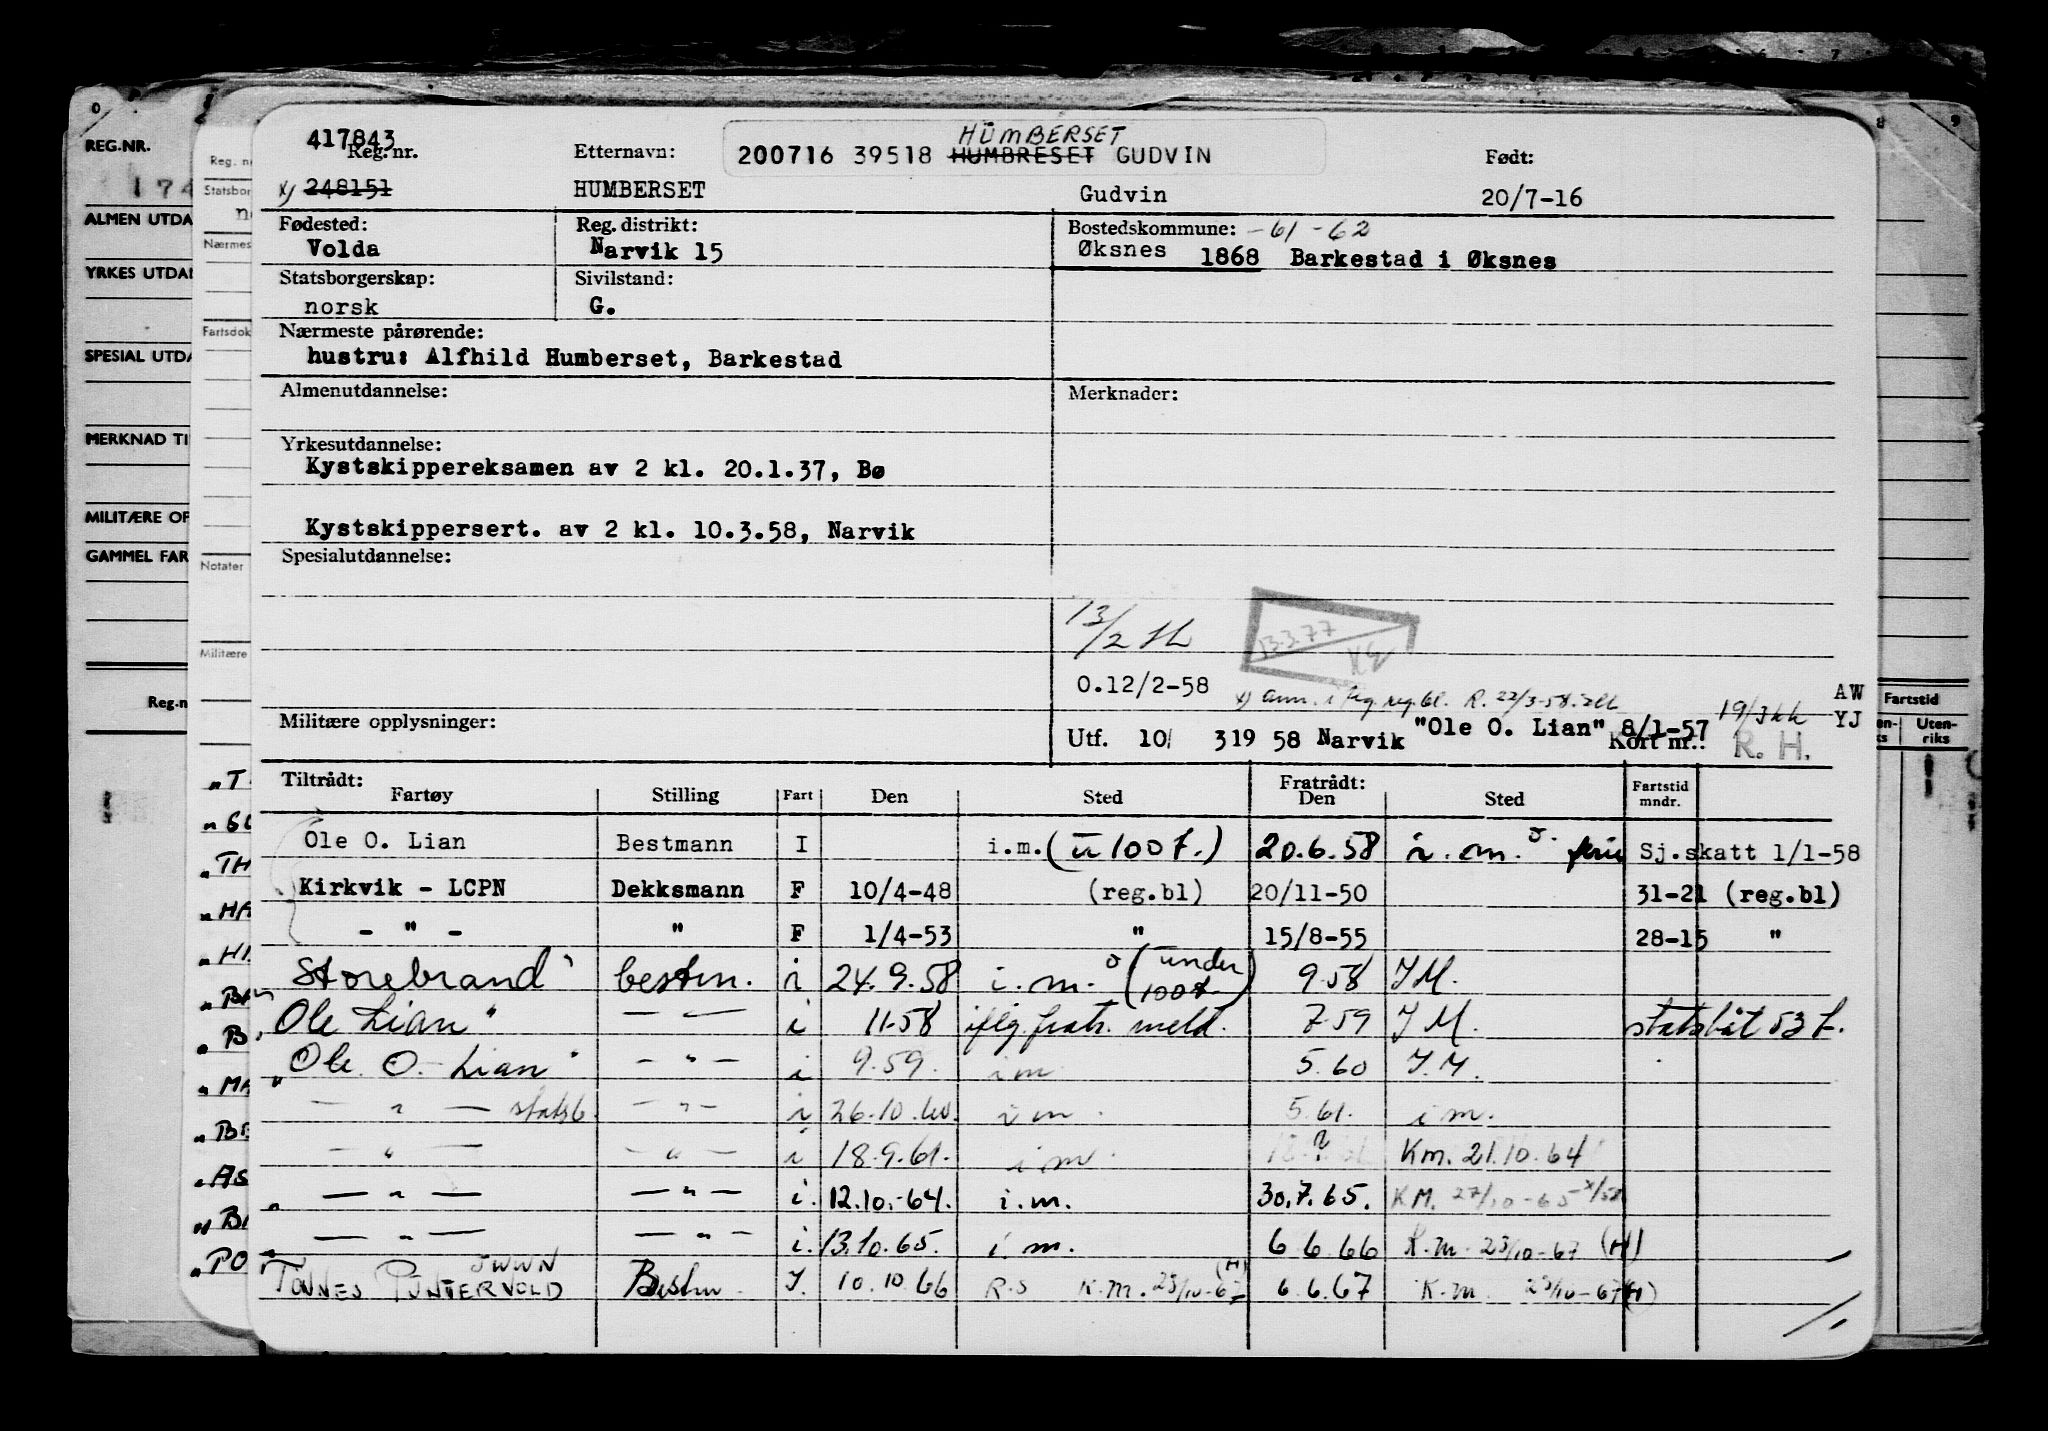 417843 HUMBERSET
Reg.nr. Etternavn: 200716 39518 HUMBRESET GUDVIN Født:
x) 248151 HUMBERSET Gudvin 20/7-16
Fødested: Reg. distrikt: Bostedskommune: -61 -62
Volda Narvik 15 Øksnes 1868 Barkestad i Øksnes
Statsborgerskap: Sivilstand:
norsk G.
Nærmeste pårørende:
hustru: Alfhild Humberset, Barkestad
Almenutdannelse: Merknader:
Yrkesutdannelse:
Kystskippereksamen av 2 kl. 20.1.37, Bø
Kystskippersert. av 2 kl. 10.3.58, Narvik
Spesialutdannelse:
13/2 13.3.77
O.12/2-58 x) ann. i reg.bl. R. 22/3-58. AW
Militære opplysninger: "Ole O. Lian" 8/1-57 19/3 YJ
Utf. 10/ 319 58 Narvik Kort nr.: R. H.
Tiltrådt: Fratrådt: Fartstid
Fartøy Stilling Fart Den Sted Den Sted mndr.
Ole O. Lian Bestmann I i.m. (u 100 t.) 20.6.58 i.m. Sj.skatt 1/1-58
Kirkvik - LCPN Dekksmann F 10/4-48 (reg.bl) 20/11-50 31-21 (reg.bl)
- " - " F 1/4-53 " 15/8-55 28-15 "
Storebrand" bestm. i 24.9.58 i.m. (under 100t.) 9.58 I M.
Ole Lian" — — i 11.58 iflg. fratr. meld. 7.59 I M. statsbåt 53 t.
"Ole O. Lian" - " - i 9.59. i m 5.60 I.M.
— " — statsb. - " - i 26.10.60. i m. 5.61. i m.
— " — - " - i 18.9.61. i m. ? Km. 21.10.64
— " — — " — i. 12.10.-64. i.m. 30.7.65. K.M. 27/10-65
— " — — " — i. 13.10.65. i.m. 6.6.66 K.m. 23/10-67 (H)
JWWN
TØNNES PUNTERVOLD Bestm. I. 10.10.66 R.S K.M. 23/10-67 (H) 6.6.67 K.m. 23/10-67 (H)
REG.NR.
174
ALMEN UTDA
YRKES UTDAN
SPECIAL UTDA
MERKNAD TI
MILITÆRE OP
GAMMEL FAR
Reg.n
Reg. nr
Statsbor
Nærmes
Fartsdok
Notater
Militære
Fartstid
Uten-
riks